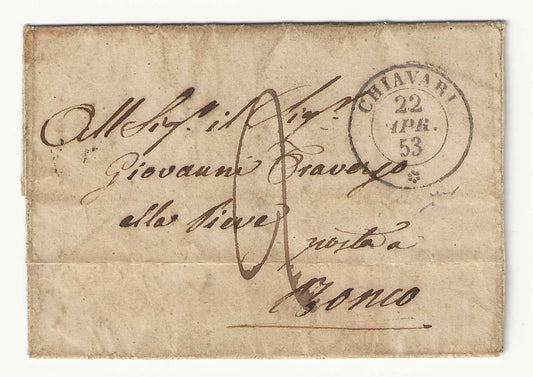 CHIAVARI
22
APR.
53
All Sigr. il Sigr.
Giovanni Traverso
alla Pieve
posta a
Ronco